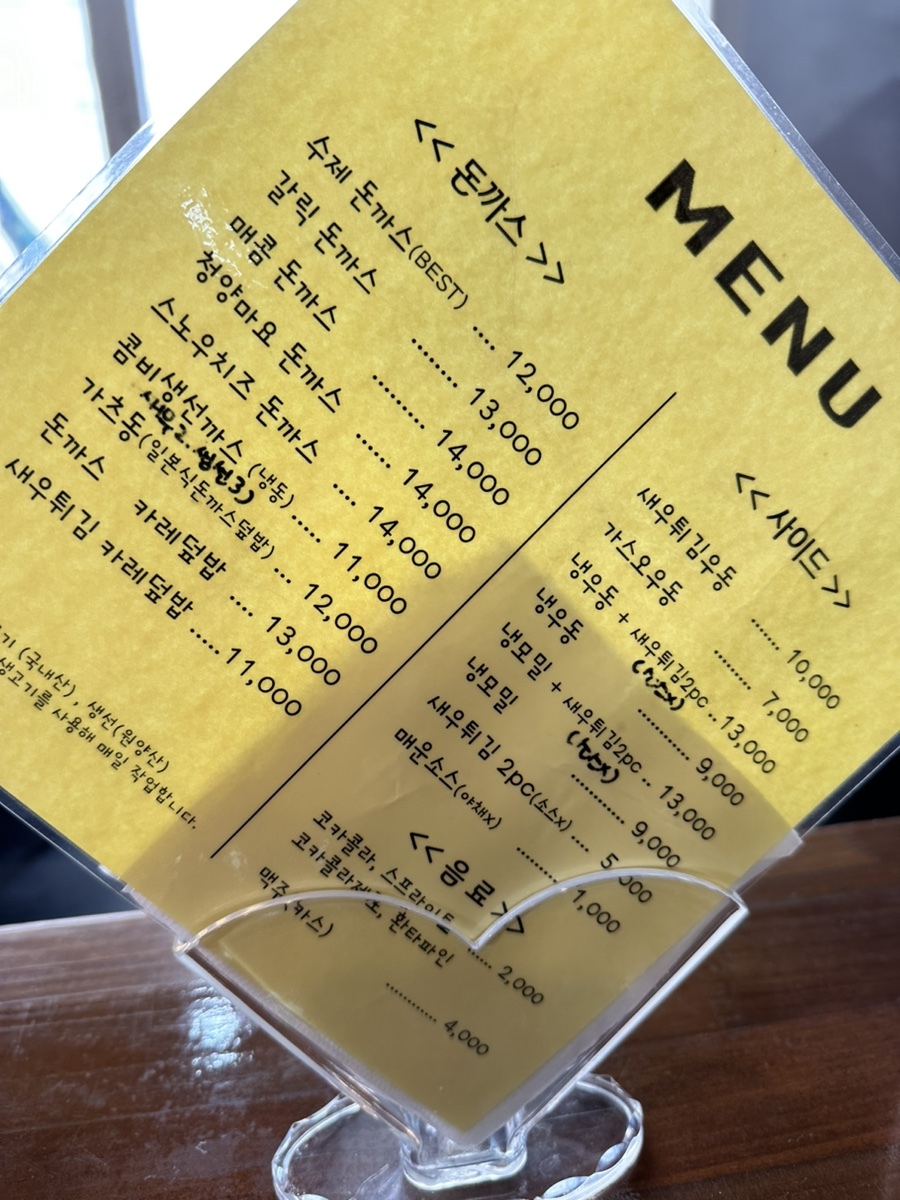 MENU
<< 돈까스 >>
수제 돈까스(BEST) .... 12,000
갈릭 돈까스 ........ 13,000
매콤 돈까스 ........ 14,000
청양마요 돈까스 ...... 14,000
스노우치즈 돈까스 .... 14,000
콤비생선까스 (냉동) ..... 11,000
새우2. 생선3)
가츠동(일본식돈까스덮밥) ... 12,000
돈까스 카레덮밥 .... 13,000
새우튀김 카레덮밥 ..... 11,000
기 (국내산) , 생선(원양산)
생고기를 사용해 매일 작업합니다.
<< 사이드 >>
새우튀김우동 ......... 10,000
가스오우동 ........ 7,000
냉우동 + 새우튀김2pc .. 13,000
냉우동 ............ 9,000
냉모밀 + 새우튀김2pc .. 13,000
냉모밀 ............ 9,000
새우튀김 2pc(소스x) .... 5,000
매운소스(야채x) ......... 1,000
<< 음료 >>
코카콜라, 스프라이트
코카콜라제로, 환타파인 ...... 2,000
맥주(카스) ............ 4,000